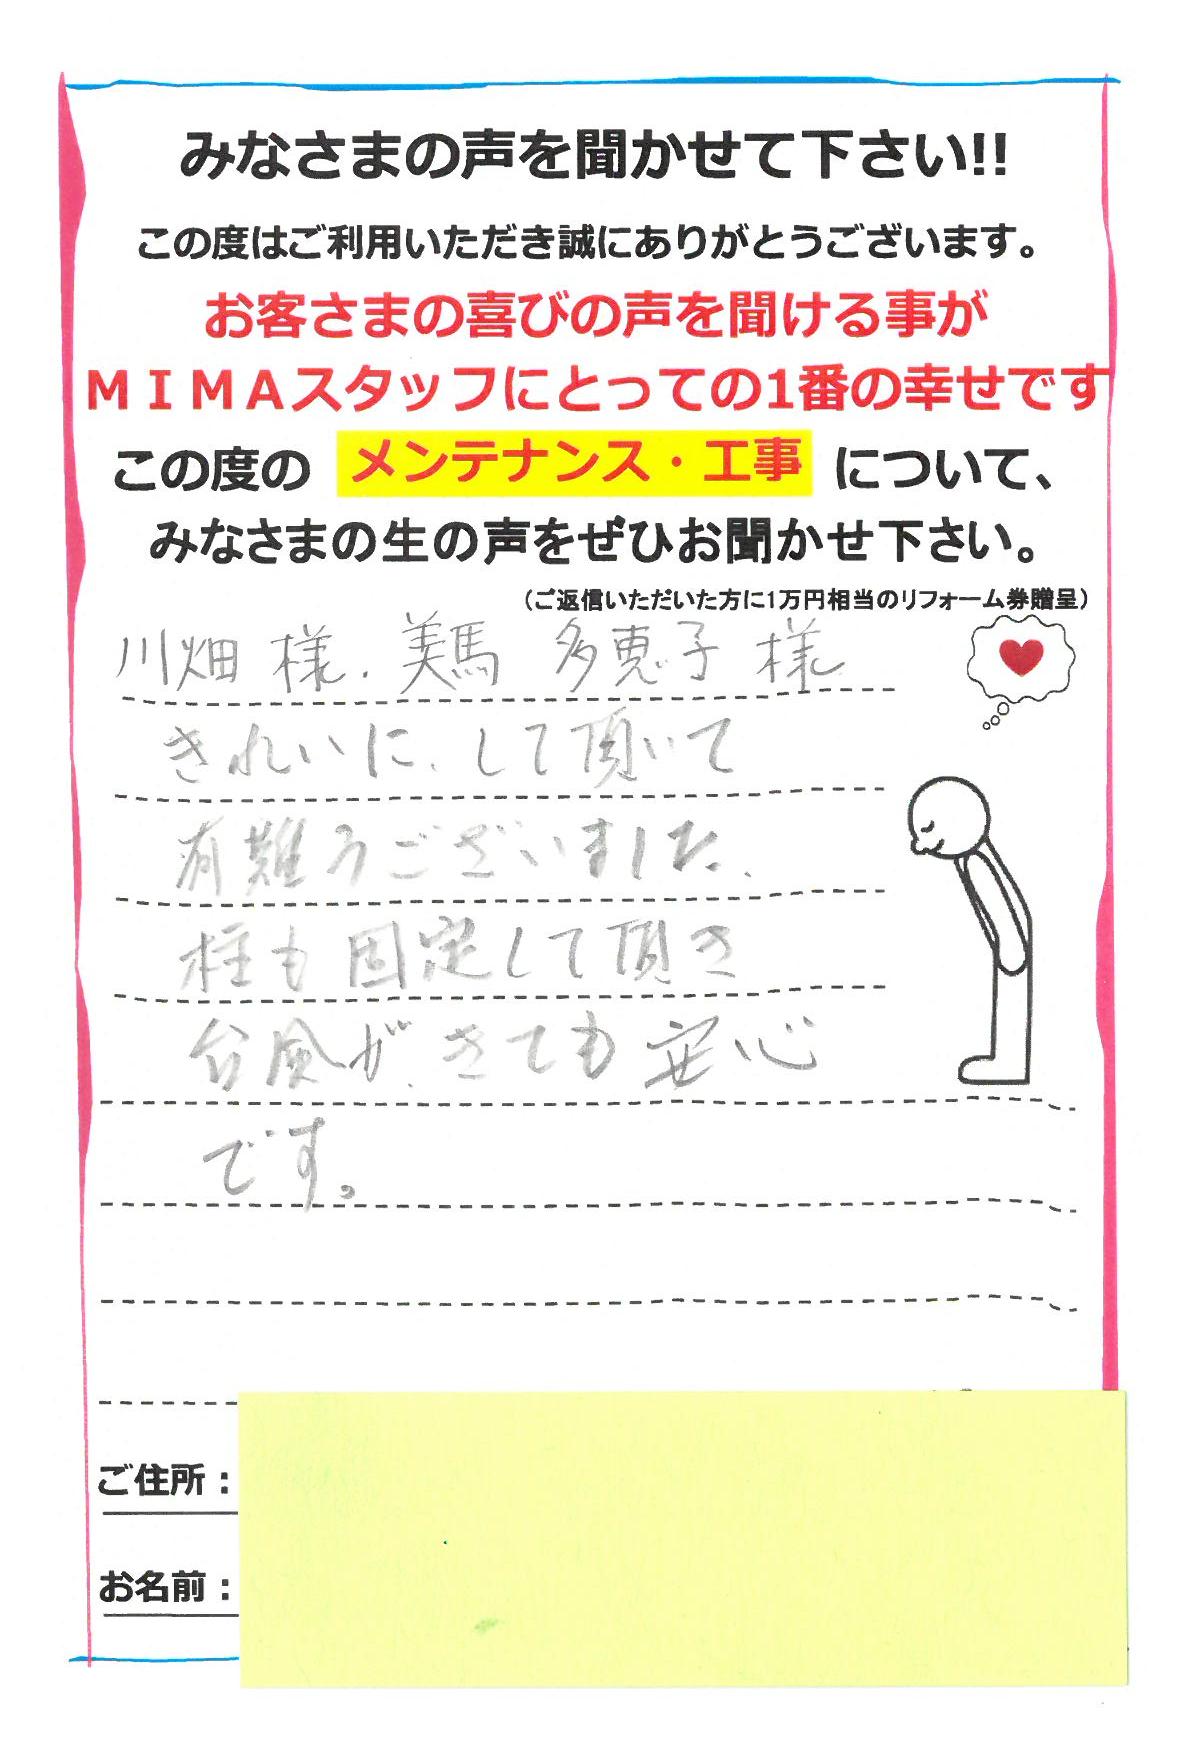 みなさまの声を聞かせて下さい!!
この度はご利用いただき誠にありがとうございます。
お客さまの喜びの声を聞ける事が
ＭＩＭＡスタッフにとっての1番の幸せです
この度の メンテナンス・工事 について、
みなさまの生の声をぜひお聞かせ下さい。
（ご返信いただいた方に1万円相当のリフォーム券贈呈）
川畑 様. 美馬 多恵子 様
きれいに、して頂いて
有難うございました、
柱も固定して頂き
台風が、きても安心
です。
ご住所：
お名前：